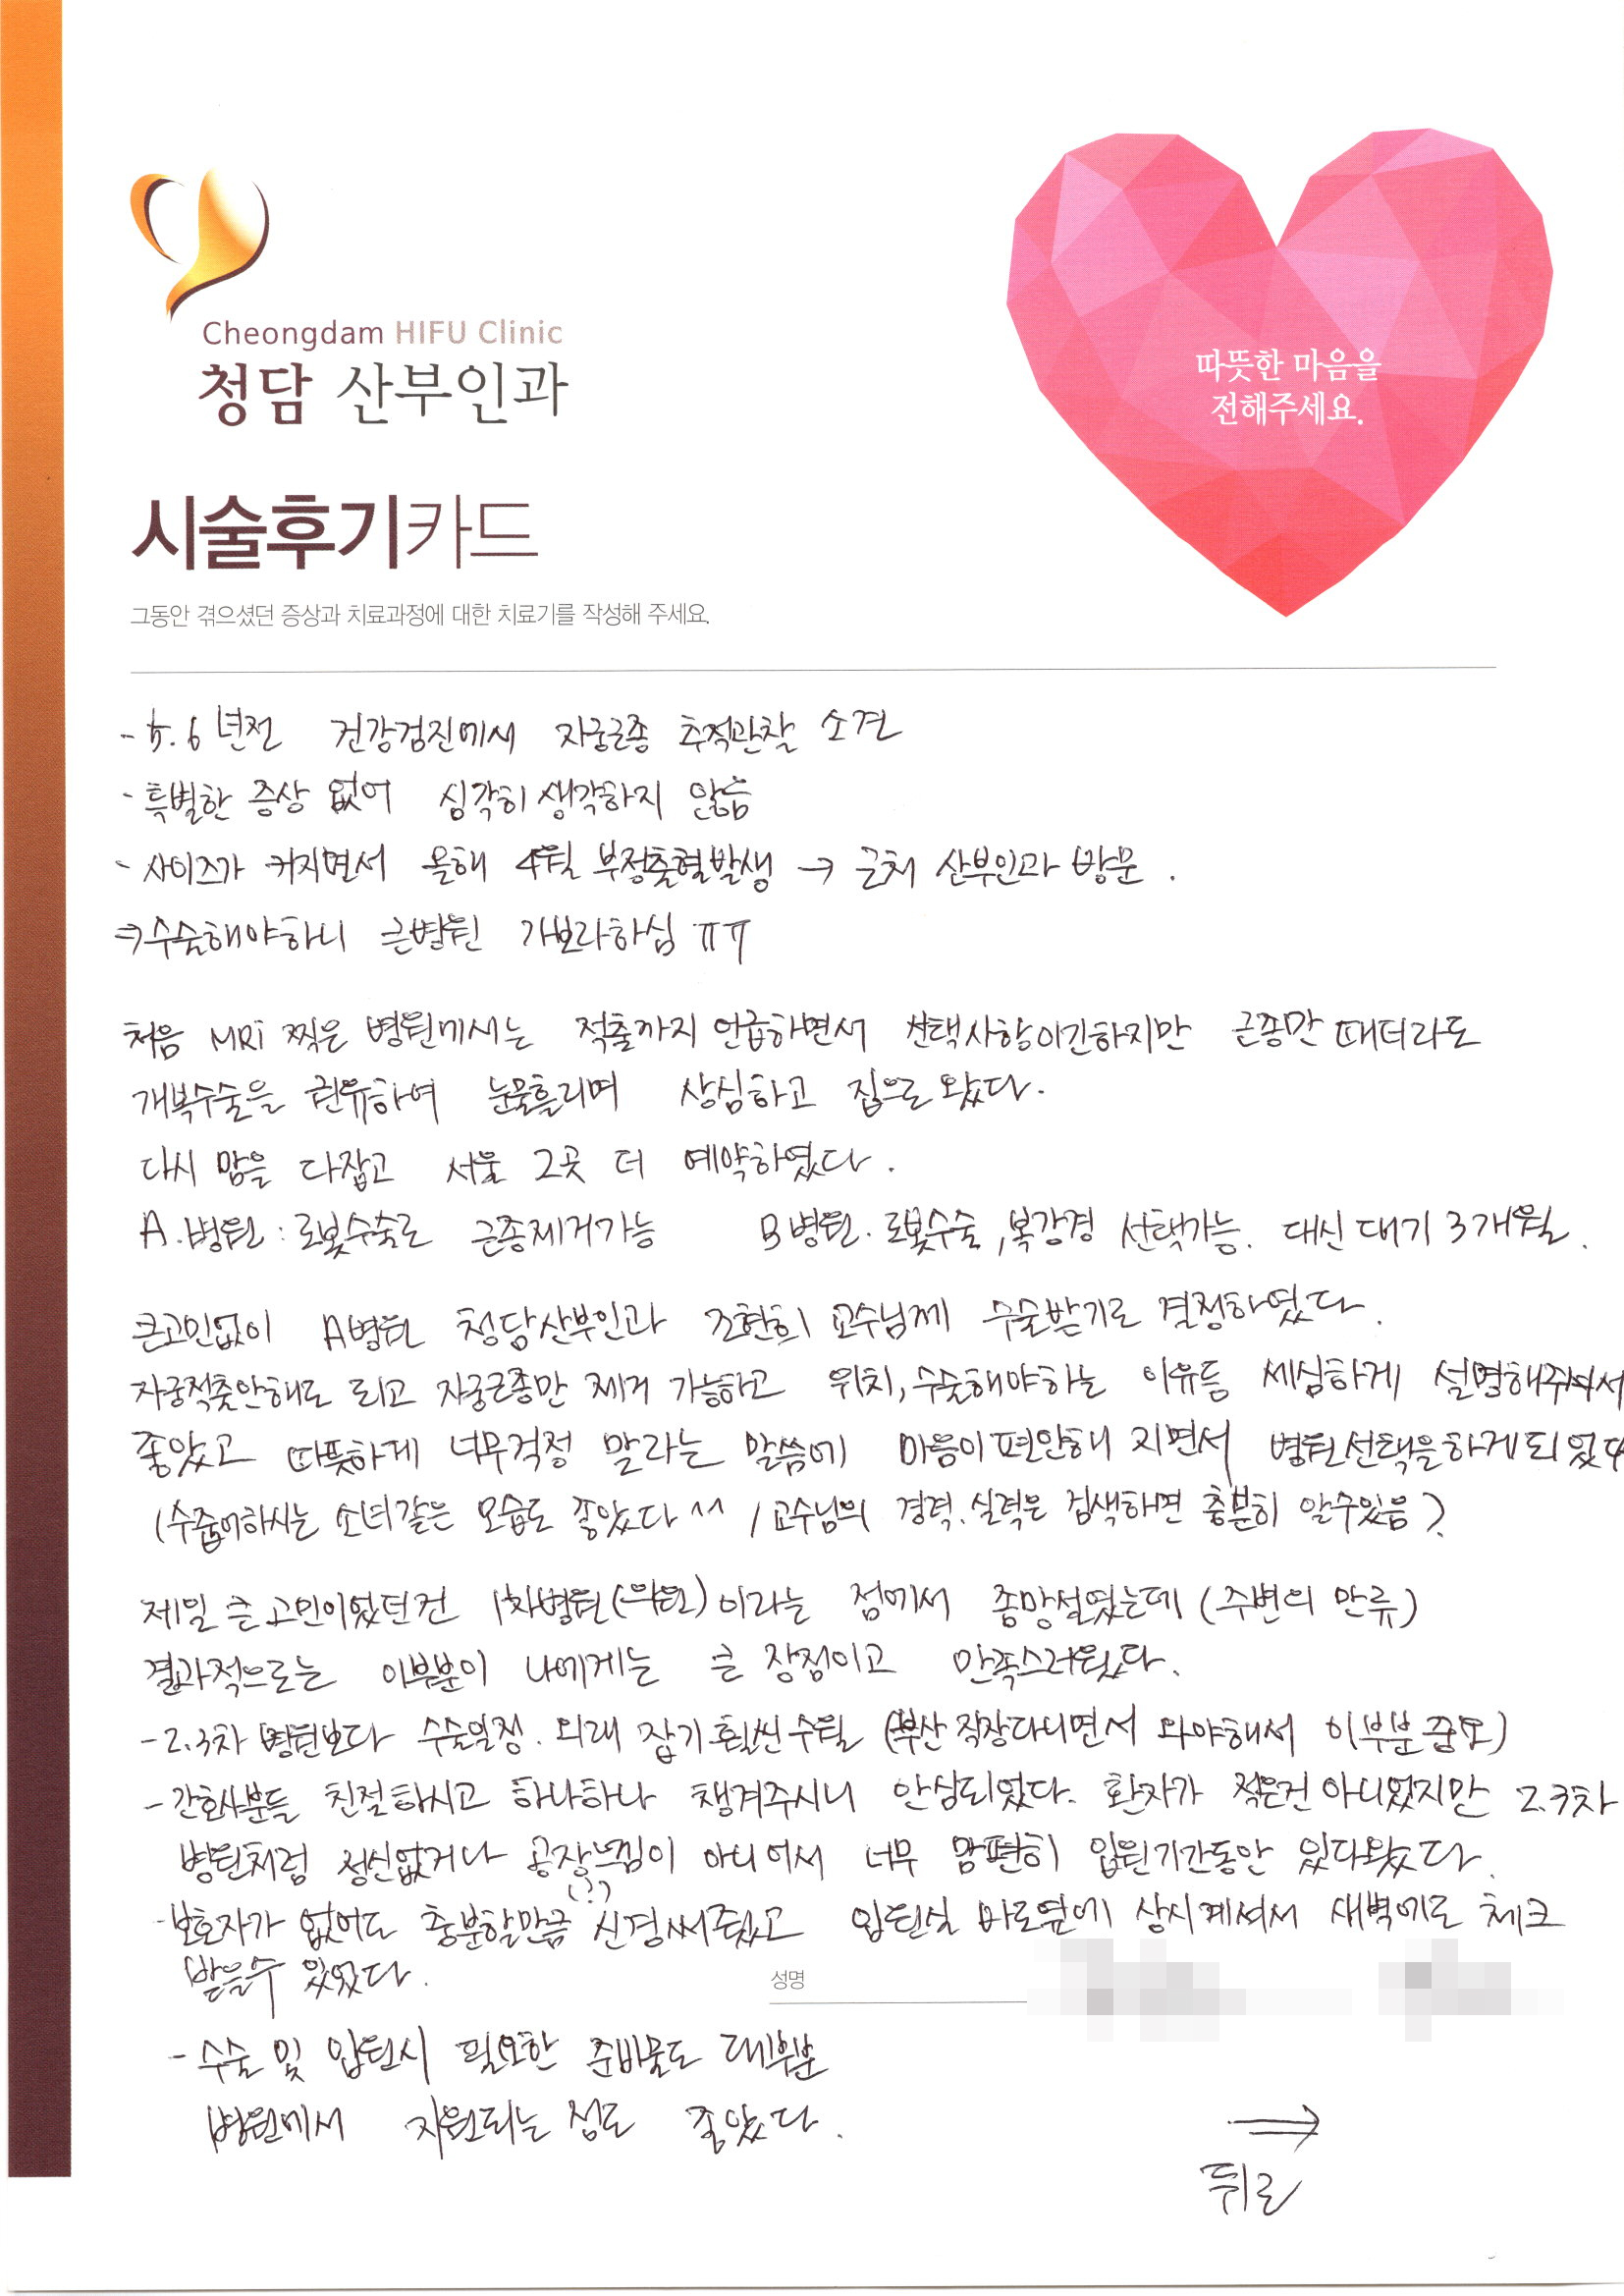 Cheongdam HIFU Clinic
청담 산부인과
따뜻한 마음을
전해주세요.
시술후기카드
그동안 겪으셨던 증상과 치료과정에 대한 치료기를 작성해 주세요.
- 5.6년전 건강검진에서 자궁근종 추적관찰 소견
- 특별한 증상 없어 심각히 생각하지 않음
- 사이즈가 커지면서 올해 4월 부정출혈발생 → 근처 산부인과 방문.
→ 수술해야하니 큰병원 가보라하심 ㅠㅠ
처음 MRi 찍은 병원에서는 적출까지 언급하면서 선택사항이긴하지만 근종만 떼더라도
개복수술을 권유하여 눈물흘리며 상심하고 집으로 왔다.
다시 맘을 다잡고 서울 2곳 더 예약하였다.
A.병원 : 로봇수술로 근종제거가능 B병원. 로봇수술, 복강경 선택가능. 대신 대기 3개월.
큰고민없이 A병원 청담산부인과 조현희 교수님께 수술받기로 결정하였다.
자궁적출안해도 되고 자궁근종만 제거 가능하고 위치, 수술해야하는 이유등 세심하게 설명해주셔서
좋았고 따뜻하게 너무걱정 말라는 말씀에 마음이 편안해 지면서 병원선택을하게되었다
(수줍어하시는 소녀같은 모습도 좋았다^^ / 교수님의 경력.실력은 검색하면 충분히 알수있음).
제일 큰 고민이었던건 1차병원(의원)이라는 점에서 좀망설였는데 (주변의 만류)
결과적으로는 이부분이 나에게는 큰 장점이고 만족스러웠다.
- 2.3차 병원보다 수술일정. 외래 잡기 훨씬 수월 (부산 직장다니면서 와야해서 이부분 중요)
- 간호사분들 친절하시고 하나하나 챙겨주시니 안심되었다. 환자가 적은건 아니었지만 2.3차
병원처럼 정신없거나 공장느낌이 아니어서 너무 맘편히 입원기간동안 있다왔다.
(?)
- 보호자가 없어도 충분할만큼 신경써주셨고 입원실 바로옆에 상시계셔서 새벽에도 체크
받을수 있었다.
성명
- 수술 및 입원시 필요한 준비물도 대부분
병원에서 지원되는 점도 좋았다.
⇒
뒤로